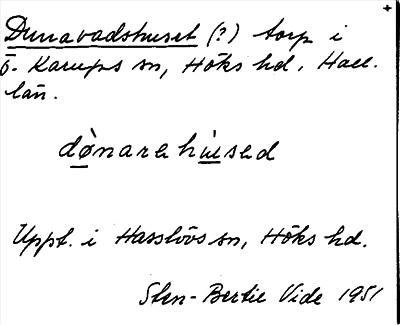 Dunavadshuset (?) torp i
Ö. Karups sn, Höks hd. Hall.
län.
dø̀narehused
Uppt. i Hasslövs sn, Höks hd.
Sten-Bertil Vide 1951